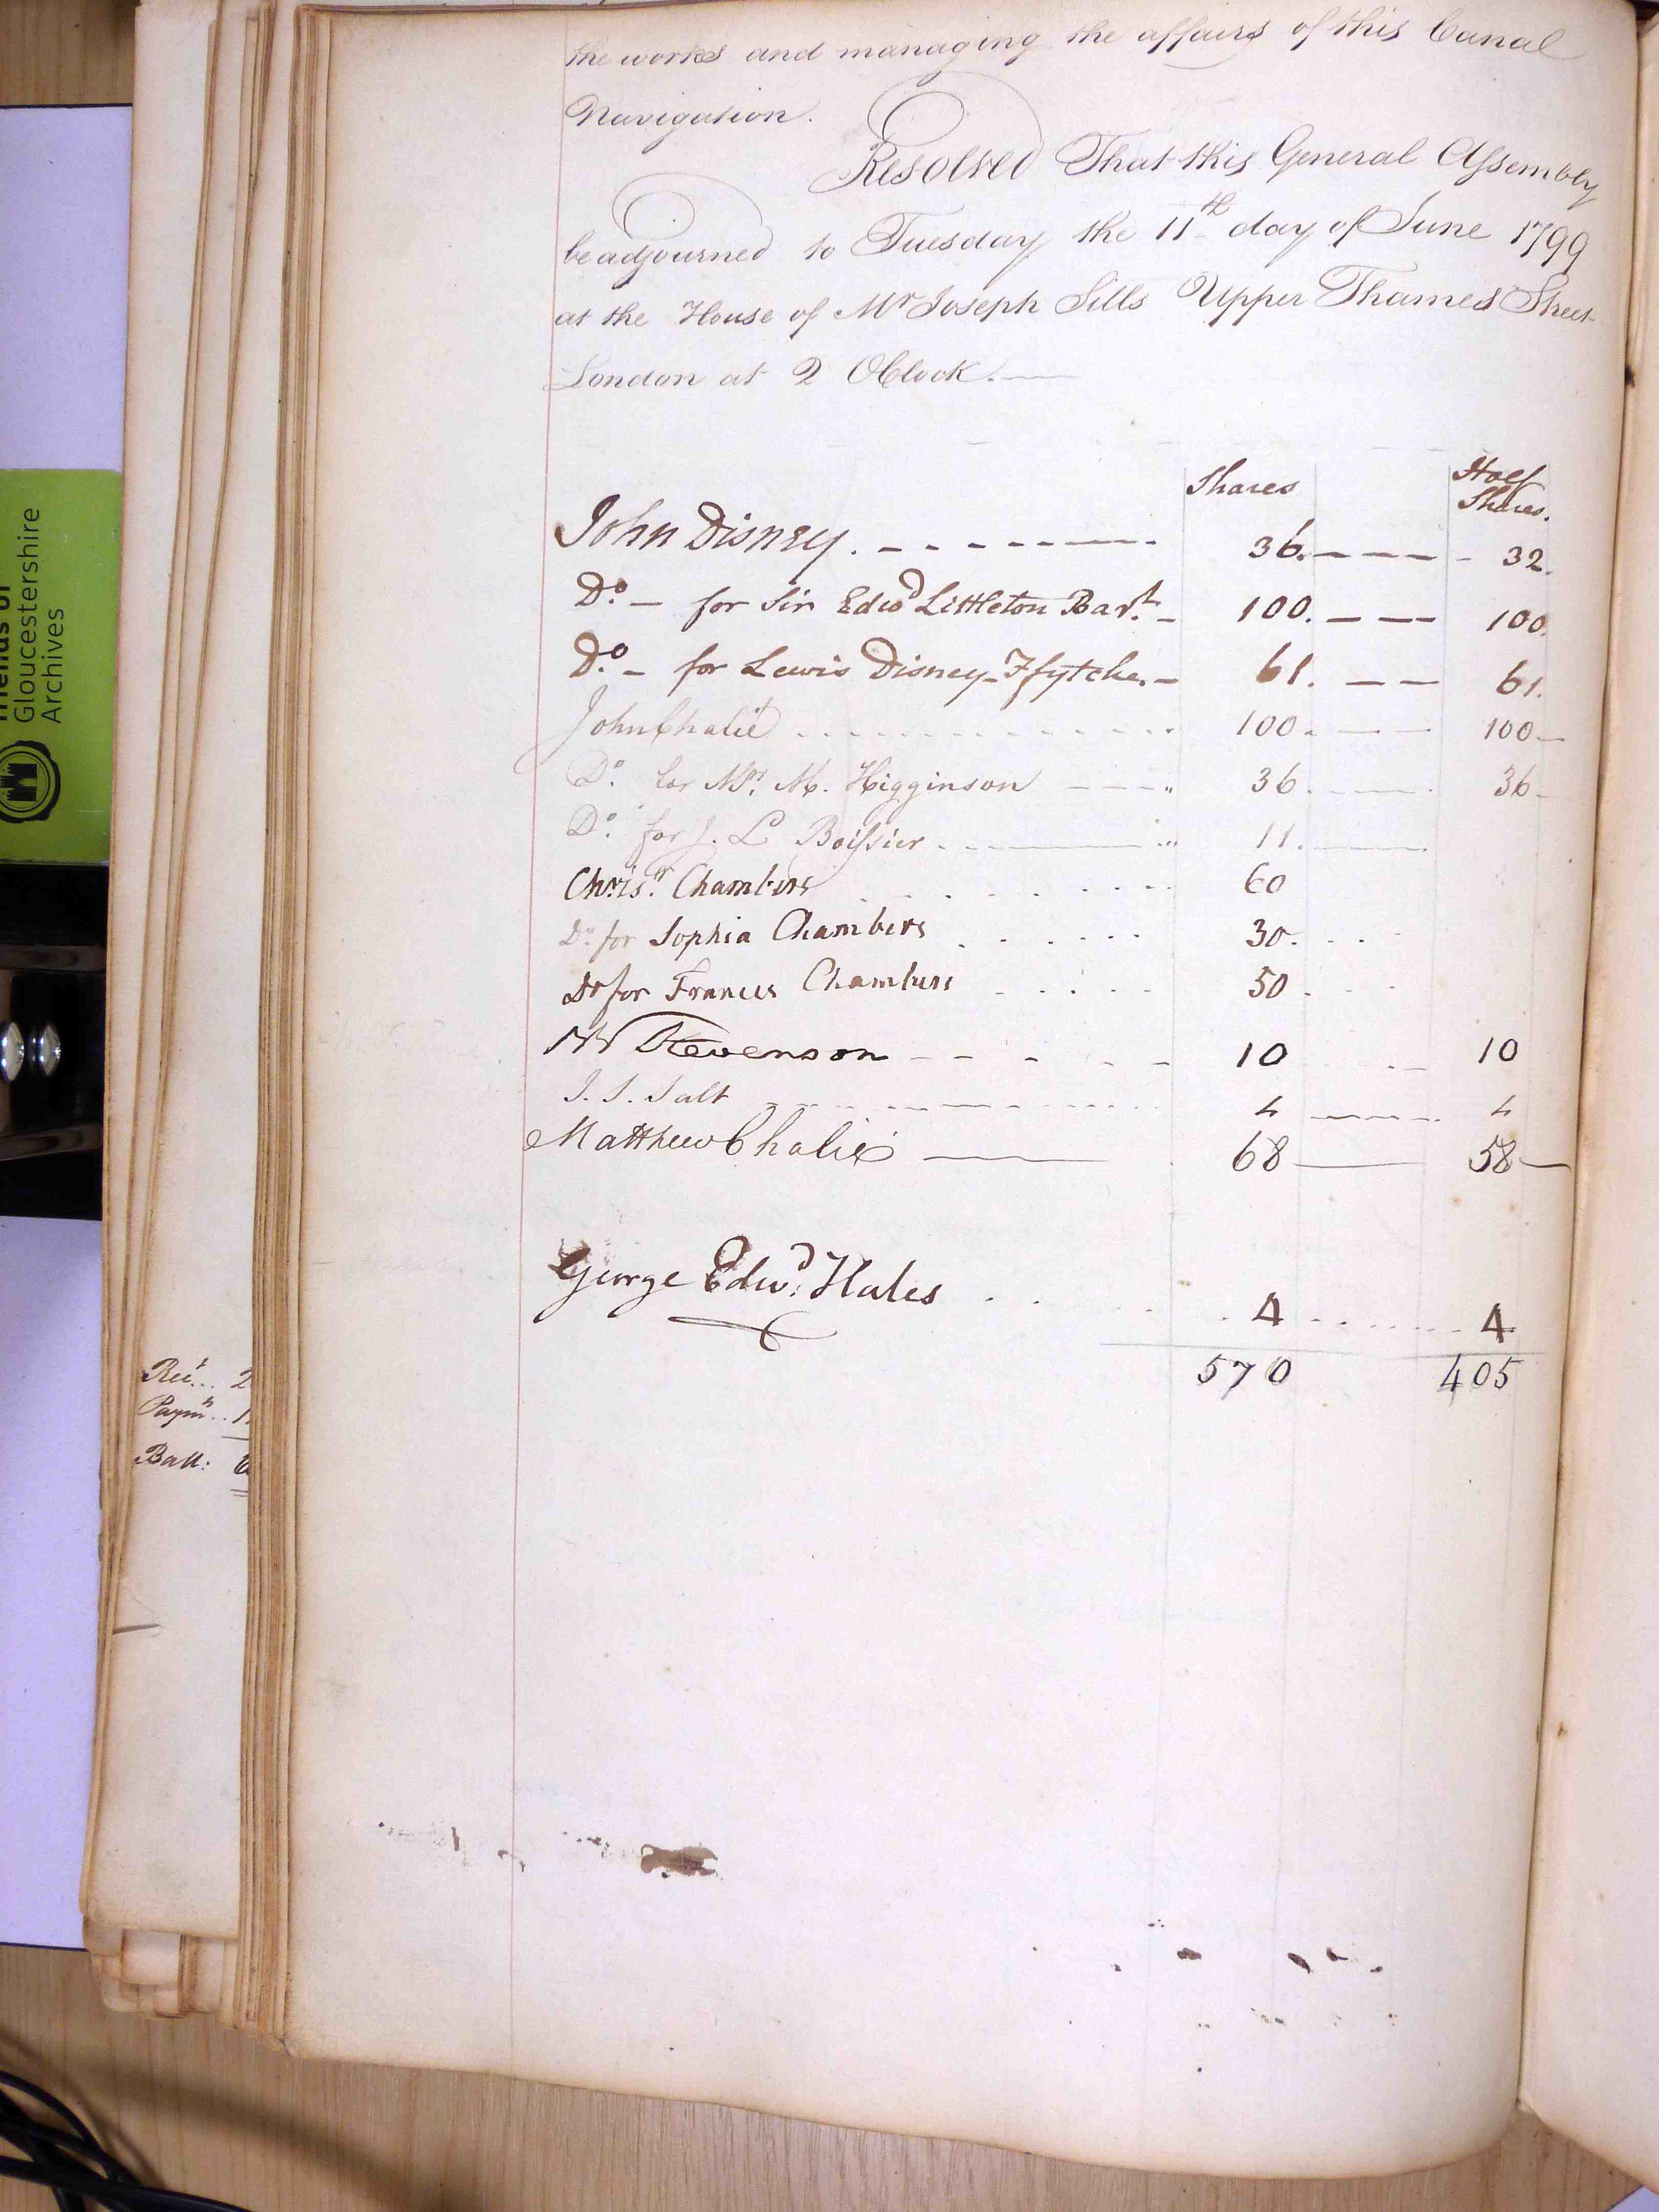 the works and managing the affairs of this Canal
Navigation.
Resolved That this General Assembly
be adjourned to Tuesday the 11th day of June 1799
at the House of Mr Joseph Sills Upper Thames Street
London at 2 OClock.
Shares Half Shares.
John Disney. 36. 32.
Do. for Sir Edwd Littleton Bart. 100. 100.
Do. for Lewis Disney Ffytche. 61. 61.
John Chalié 100. 100
Do. for Mrs. M. Higginson 36. 36
Do. for J. L Boissier. 11.
Chrisr. Chambers 60
Do. for Sophia Chambers 30.
Do for Frances Chambers 50
Stevenson 10 10
J. S. Salt 4 4
Matthew Chalié 68 58
George Edwd. Hales 4 4
570 405
Rect... 2
Paymts.. 1
Ball: 6
Friends of
Gloucestershire
Archives